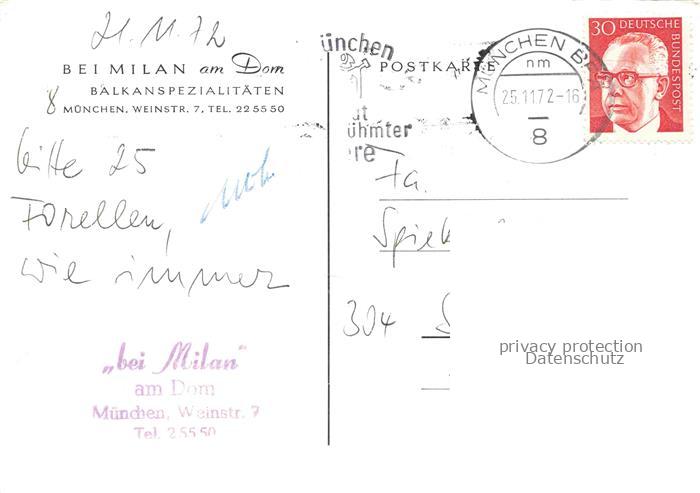 21.11.72
BEI MILAN am Dom
BALKANSPEZIALITÄTEN
8 MÜNCHEN, WEINSTR. 7, TEL. 22 55 50
bitte 25
Forellen,
wie immer
„bei Milan“
am Dom
München, Weinstr. 7
Tel. 2 55 50
ünchen
ühmter
POSTKARTE
MÜNCHEN
nm
25.11.72-16
8
30 DEUTSCHE
BUNDESPOST
Fa.
Spiel
304
privacy protection
Datenschutz